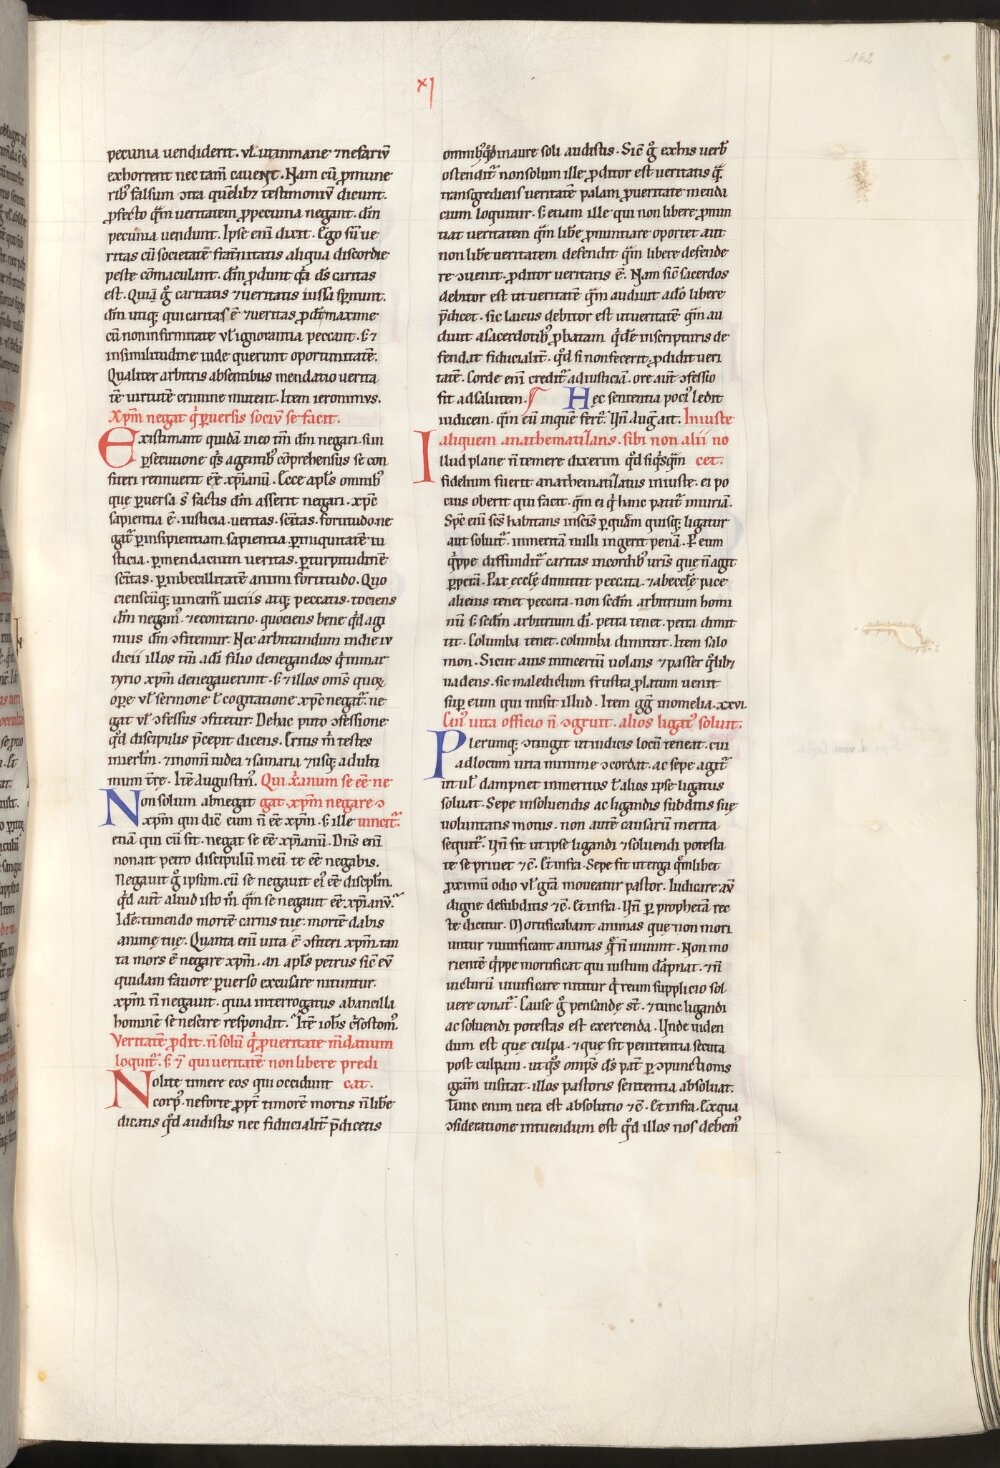 xj
162
pecunia uendiderit. ul' utinmane ⁊ nefariū
exhorrent nec tam̄ cauent. Nam cū ꝓ mune
ribꝰ falsum ɔtra quēlibꝫ testimoniū dicunt.
ꝓfecto q̄m ueritatem ꝓ pecunia negant. dm̄
pecunia uendunt. Ipse eni dixit. Ego sū ue
ritas cū societatem frat̄nitatis aliqua discordie
peste cōmaculant. dm̄ ꝓdunt q̄a ds̄ caritas
est. Quia g̊ caritatis ⁊ ueritatis iussa sp̄nunt.
dm̄ utiqꝫ qui caritas ē ⁊ ueritas ꝓdūt maxime
cū non infirmitate ul' ignorantia peccant. s; ⁊
in similitudine iude querunt oportunitatē.
Qualiter arbitris absentibus mendatio uerita
tē uirtutē crimine mutent. Item ieronimus.
Xp̄m negat q̄ ꝑuersis sociū se facit.
Existimant quidā in eo tm̄ dm̄ negari. si in
ꝑsecutione q̄s a gentibꝰ cōprehensus se con
fiteri rennuerit eē xp̄ianū. Ecce apl̄s omnibꝰ
que ꝑuersa s̄ factis dm̄ asserit negari. xp̄c
sapientia ē. iusticia. ueritas. sc̄itas. fortitudo. ne
gat̄ ꝑ insipientiam sapientia. ꝑ iniquitatē iu
sticia. ꝑ mendacium ueritas. ꝑ turpitudinē
sc̄itas. ꝑ imbecillitatē animi fortitudo. Quo
cienscūqꝫ uincim̄ uiciis atqꝫ peccatis. tociens
dm̄ negam̄. ⁊ econtrario. quociens bene q̄d agi
mus dm̄ ɔfitemur. Nec arbitrandum in die iu
dicii illos tm̄ a dī filio denegandos q̄ in mar
tyrio xp̄m denegauerunt. s; ⁊ illos om̄s quoꝝ
oꝑe ul' sermone l' cogitatione xp̄c negat̄. ne
gat ul' ɔfessus ɔfitetur. De hac puto ɔfessione
q̄d discipulis p̄cepit dicens. Eritis m̄ testes
in ierl̄m. ⁊ in om̄i iudea ⁊ samaria ⁊ usqꝫ ad ulti
mum tr̄e. Itē Augustinꝰ. Qui xp̄ianum se eē ne
Non solum abnegat gat xp̄m negare ɔ
xp̄m qui dic̄ eum n̄ eē xp̄m. s; ille uincit̄.
etiā qui cū sit. negat se eē xp̄ianū. Dn̄s eni
non ait petro discipulū meū te eē negabis.
Negauit g̊ ipsum. cū se negauit eiꝰ eē discipl̄m.
q̄d aut̄ aliud isto m̄ q̄m se negauit eē xp̄ianū.
Idē. timendo mortē carnis tue. mortē dabis
anime tue. Quanta eni uita ē ɔfiteri xp̄m. tan
ta mors ē negare xp̄m. an apl̄s petrus sic̄ eū
quidam fauore ꝑuerso excusare nituntur.
xp̄m n̄ negauit. quia interrogatus ab ancilla
hominē se nescire respondit. Itē ioh̄s c̄sostomꝰ.
Veritatē ꝓdit. n̄ solū q̄ ꝓ ueritate m̄datium
loquit̄. s; ⁊ qui ueritatē non libere predi
Nolite timere eos qui occidunt cat.
corpꝰ. ne forte ꝓpt̄ timorē mortis n̄ libe
dicatis q̄d audistis nec fiducialit̄ p̄dicetis
omnibꝰ q̄d in aure soli audistis. Sic̄ g̊ ex his uerbꝰ
ostendit̄ non solum ille ꝓditor est ueritatis q̄
transgrediens ueritatē palam ꝓ ueritate menda
cium loquitur. s; etiam ille qui non libere ꝓnun
tiat ueritatem q̄m libe ꝓnuntiare oportet aut
non libe ueritatem defendit q̄m libere defende
re ɔuenit. ꝓditor ueritatis ē. Nam sic̄ sacerdos
debitor est ut ueritatē q̄m audiuit a dō libere
p̄dicet. sic laicus debitor est ut ueritatē q̄m au
diuit a sacerdotibꝰ ꝓbatam q̄dē in scripturis de
fendat fiducialit̄. q̄d si non fecerit ꝓdidit ueri
tatē. Corde eni credit̄ ad iusticiā. ore aut̄ ɔfessio
fit ad salutem. Hec sententia pociꝰ ledit
iudicem. q̄m eū in quē fert̄. Un̄ Auḡ ait. Iniuste
aliquem anathematizans. sibi non alii no
Illud plane n̄ temere dixerim q̄d si q̄sq̄m cet.
fidelium fuerit anathematizatus iniuste. ei po
cius oberit qui facit. q̄m ei q̄ hanc patit̄ iniuriā.
Sp̄c eni sc̄s habitans in sc̄is ꝑ quē quisqꝫ ligatur
aut soluit̄. inmeritā nulli ingerit penā. P eum
q̄ppe diffundit̄ caritas in cordibꝰ uris̄ que n̄ agit
ꝑperā. Pax eccl̄ę dimittit peccata. ⁊ ab eccl̄ę pace
alienis tenet peccata. non scd̄m arbitrium homi
nū s; scd̄m arbitrium dī. petra tenet. petra dimit
tit. Columba tenet. columba dimittit. Item salo
mon. Sicut auis in incertū uolans ⁊ passer q̄libꝫ
uadens. sic maledictum frustra ꝓlatum uenit
suꝑ eum qui misit illud. Item g̅g̅ in omelia. xxvi.
Cuiꝰ uita officio n̄ ɔgruit. alios ligat̄ soluit.
Plerumqꝫ ɔtingit ut iudicis locū teneat. cui
ad locum uita minime ɔcordat. ac sepe agit̄
ut ul' dampnet inmeritos l' alios ipse ligatus
soluat. Sepe in soluendis ac ligandis subditis sue
uoluntatis motus. non autē causarū merita
sequit̄. Un̄ fit ut ipse ligandi ⁊ soluendi potesta
te se priuet ⁊c̄. Et infra. Sepe fit ut erga q̄mlibet
ꝓximū odio ul' gr̄a moueatur pastor. Iudicare aū
digne de subditis ⁊c̄. Et infra. Un̄ ꝑ prophetā rec
te dicitur. Mortificabant animas que non mori
untur ⁊ uiuificant animas q̄ n̄ uiuunt. Non mo
rientē q̄ppe mortificat qui iustum dāpnat. ⁊ n̄
uicturū uiuificare nititur q̄ reum supplicio sol
uere conat̄. Cause g̊ pensande st̄. ⁊ tunc ligandi
ac soluendi potestas est exercenda. Unde uiden
dum est que culpa. ⁊ que sit penitentia secuta
post culpam. ut q̄s omp̄s ds̄ pat̄ ꝑ ɔpunctionis
gr̄am uisitat. illos pastoris sententia absoluat.
Tunc enim uera est absolutio ⁊c̄. Et infra. Ex qua
ɔsideratione intuendum est q̄d illos nos debemꝰ